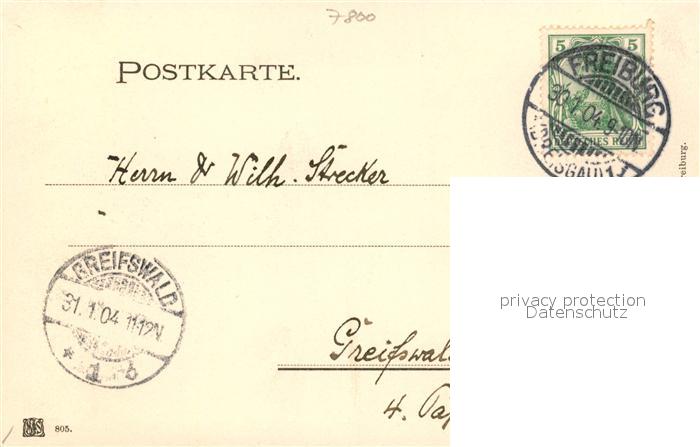 7800
POSTKARTE.
5 5
DEUTSCHES REICH
FREIBURG
30.1.04.9-10N.
(BREISGAU) 1
Herrn Dr Wilh. Strecker
reiburg.
GREIFSWALD
31.1.04 11-12V.
* 1 b
privacy protection
Datenschutz
Greifswal
4. Pap
805.